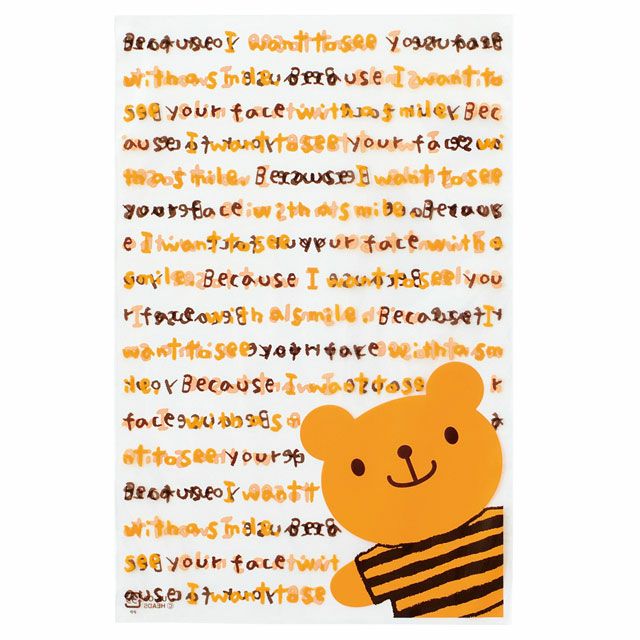 Because I want to see your face
with a smile. Because I want to
see your face with a smile. Bec
ause I want to see your face wi
th a smile. Because I want to see
your face with a smile. Becaus
e I want to see your face with a
smile. Because I want to see you
r face with a smile. Because I
want to see your face with a sm
ile. Because I want to see
face with a
nt to see your
Because I want t
with a smile. Bec
see your face wit
ause I want to se
© HEADS
PP